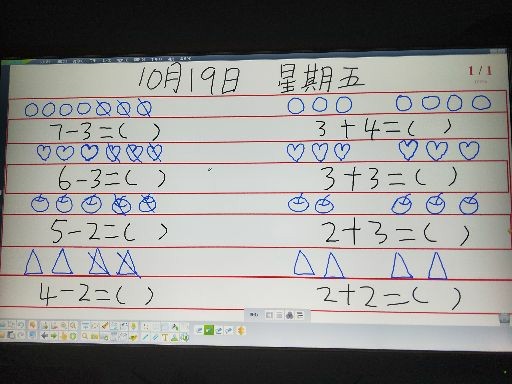 10月19日 星期五
1/1
7-3=( ) 3+4=( )
6-3=( ) 3+3=( )
5-2=( ) 2+3=( )
4-2=( ) 2+2=( )